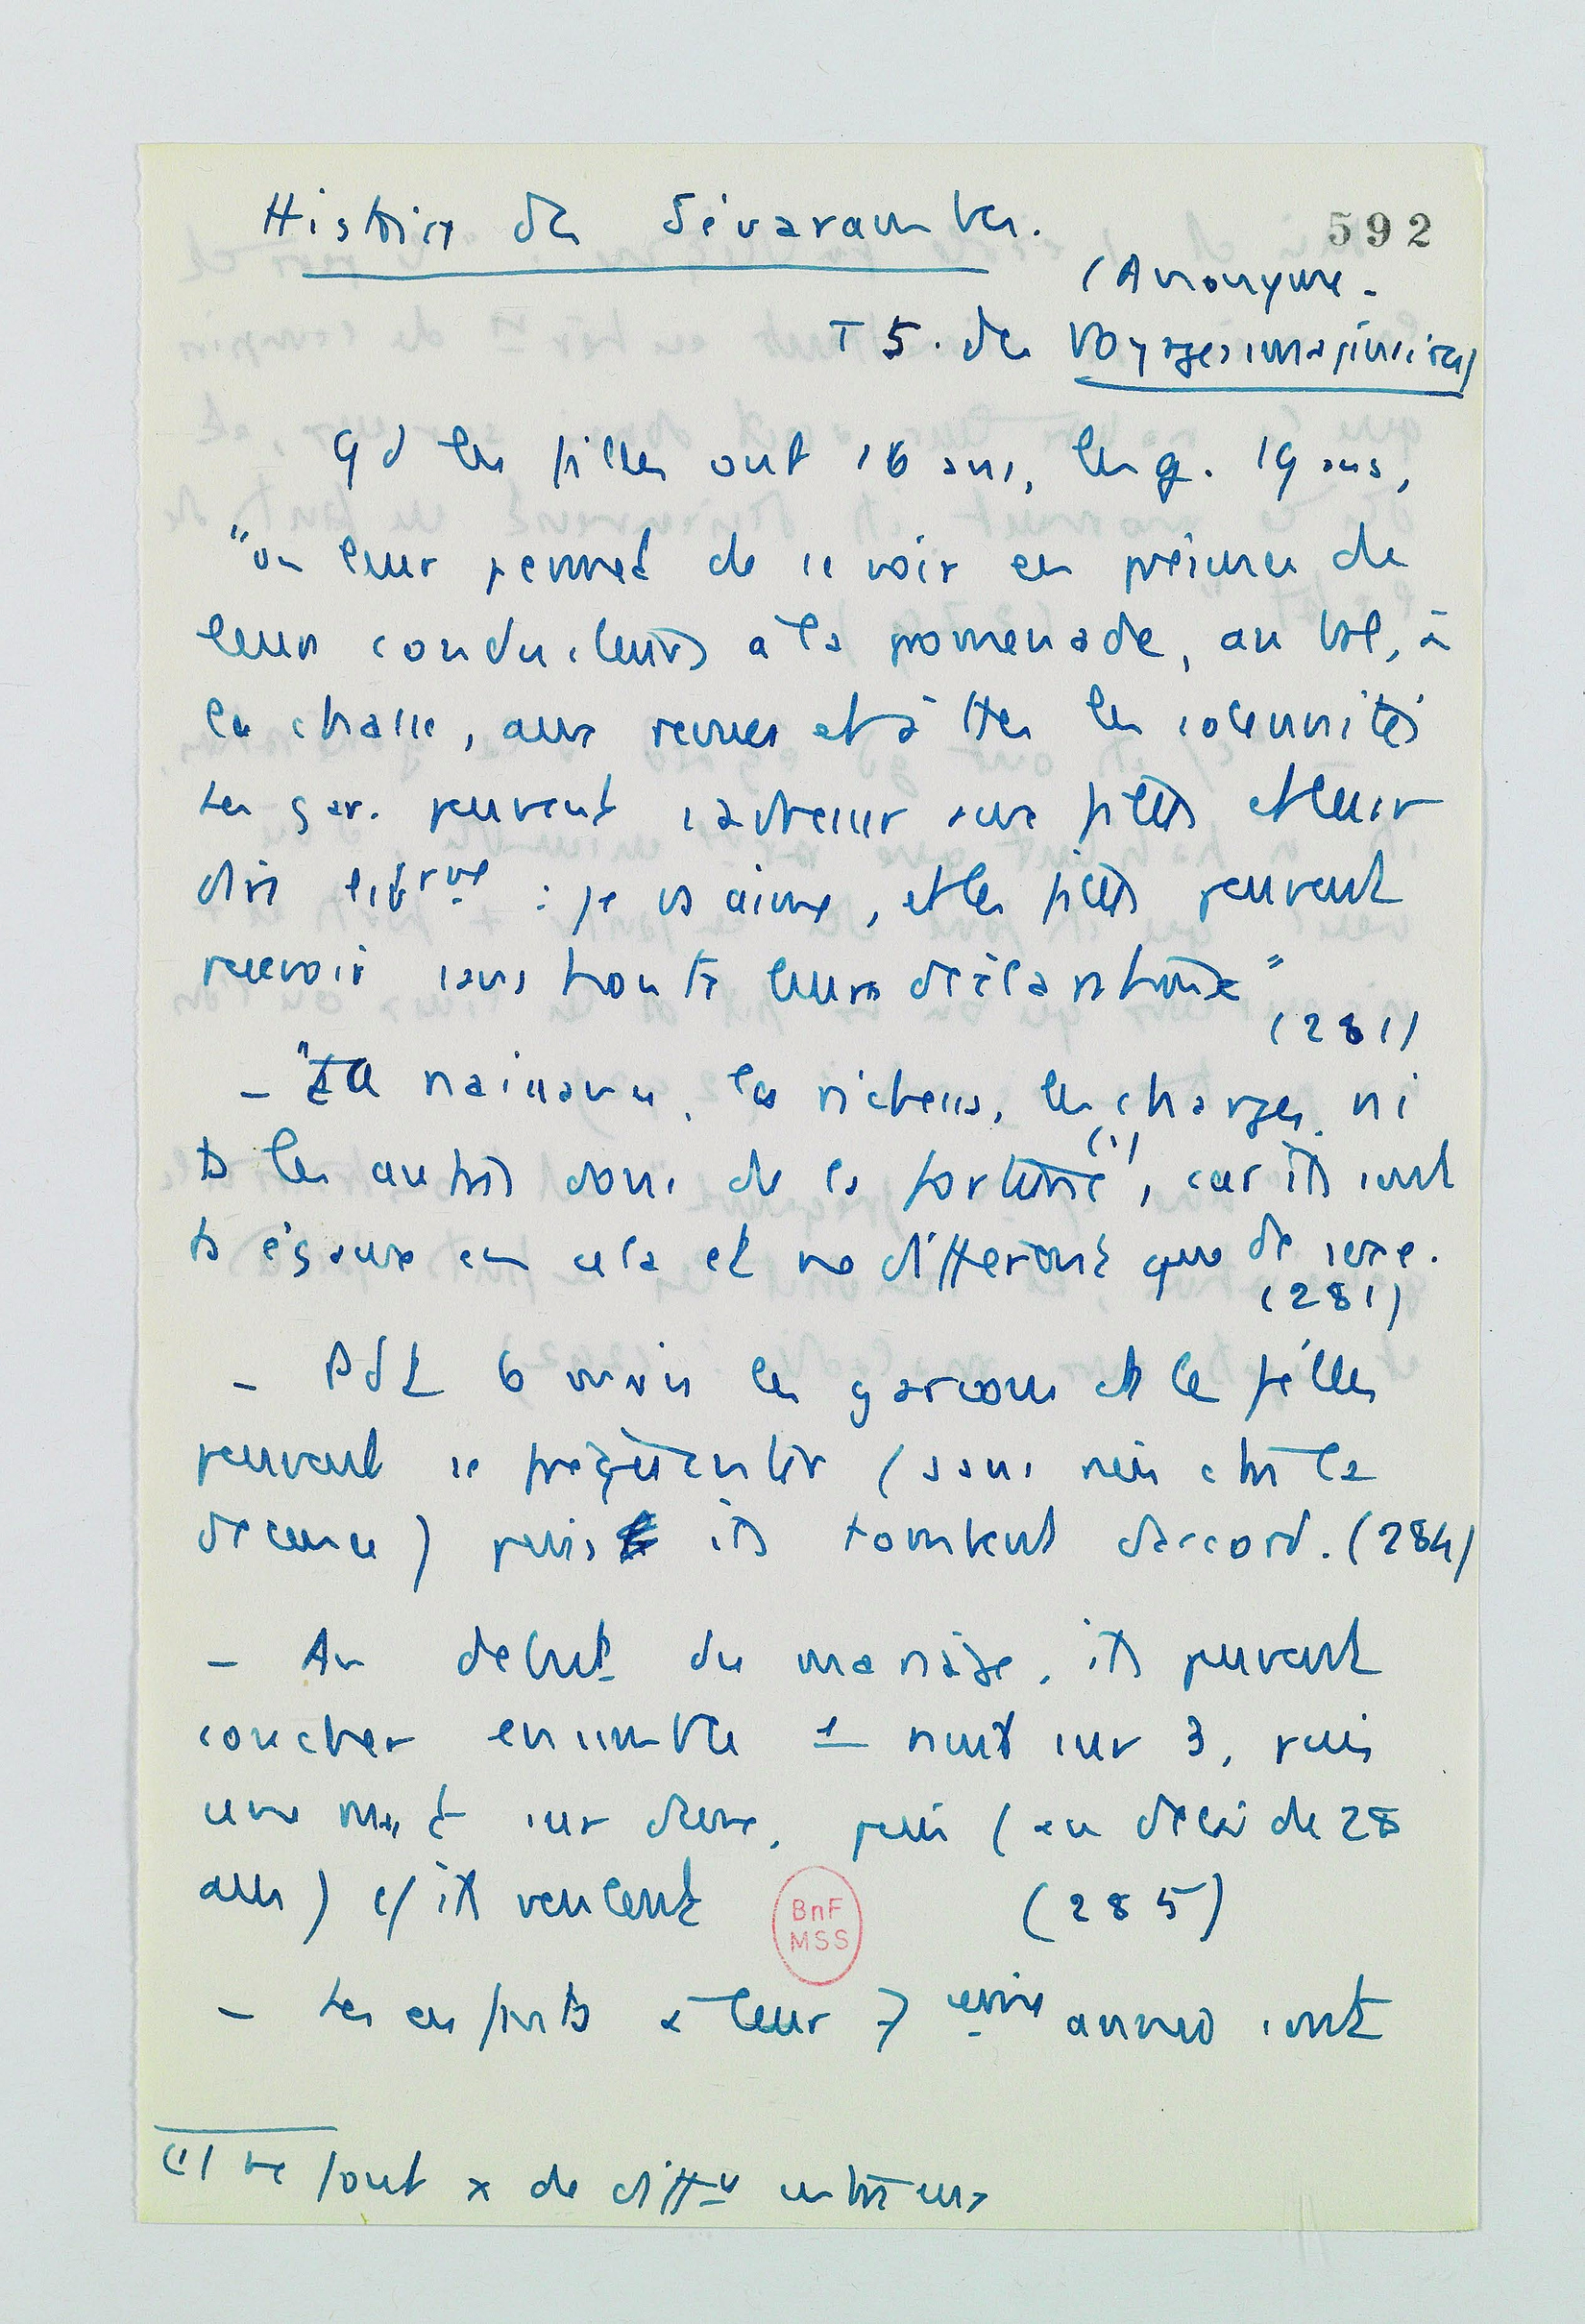 Histoire des Sévarambes.
592
(Anonyme.
T 5. des Voyages imaginaires)
Qd les filles ont 16 ans, les g. 19 ans,
"on leur permet de se voir en présence de
leurs conducteurs à la promenade, au bal, à
la chasse, aux revues et à ttes les solennités
Les gar. peuvent s'adresser aux filles et leur
dire librmt : je vs aime, et les filles peuvent
recevoir sans honte leurs déclarations"
(281)
- "La naissance, les richesses, les charges ni
ts les autres dons de la fortune (1), car ils sont
ts égaux en cela et ne diffèrent que de sexe.
(281)
- Pdt 6 mois les garçons et les filles
peuvent se fréquenter (sans nuire à la
décence) puis ils tombent d'accord. (284)
- Au début du mariage, ils peuvent
coucher ensemble 1 nuit sur 3, puis
une nuit sur deux, puis (au delà de 28
ans) c/ ils veulent (285)
BnF
MSS
- Les enfants à leur 7 eme année sont
(1) ne font x de diffce entre eux